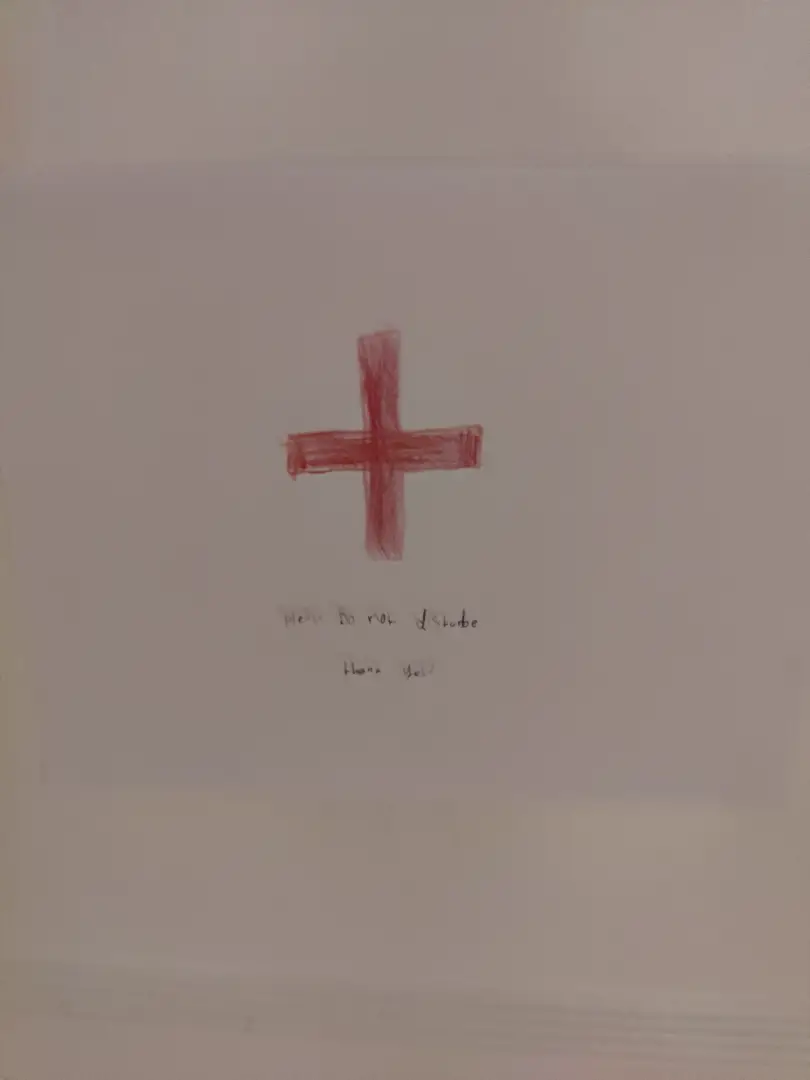 Please Do not disturbe
thank you!